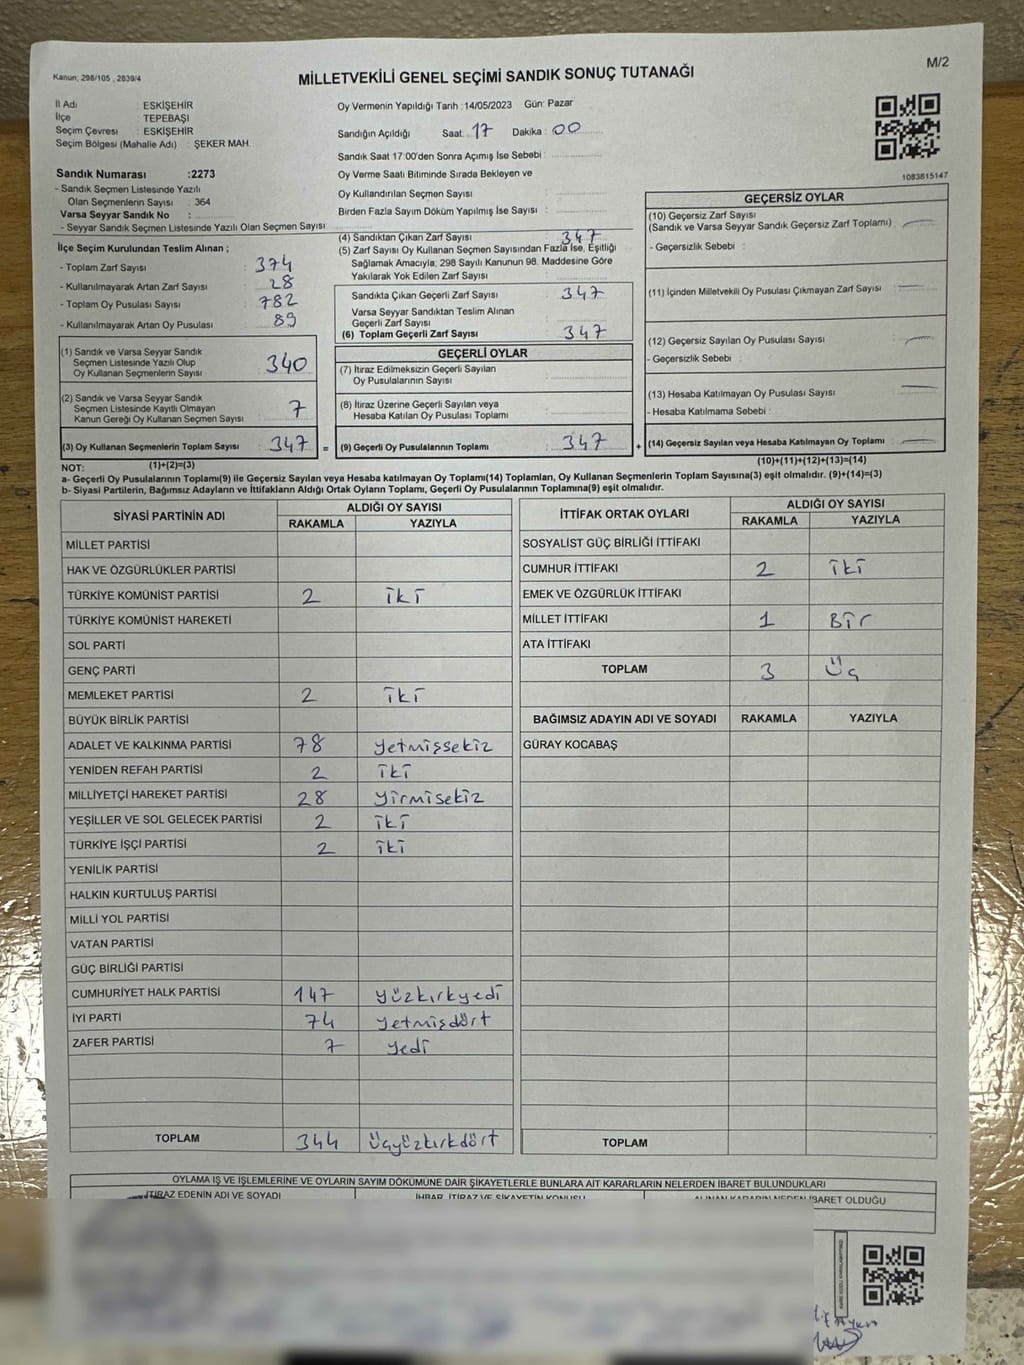 Kanun; 298/105 , 2839/4
MİLLETVEKİLİ GENEL SEÇİMİ SANDIK SONUÇ TUTANAĞI
M/2
İl Adı : ESKİŞEHİR
İlçe : TEPEBAŞI
Seçim Çevresi : ESKİŞEHİR
Seçim Bölgesi (Mahalle Adı) : ŞEKER MAH.
Sandık Numarası :2273
- Sandık Seçmen Listesinde Yazılı
Olan Seçmenlerin Sayısı : 364
Varsa Seyyar Sandık No :
- Seyyar Sandık Seçmen Listesinde Yazılı Olan Seçmen Sayısı
Oy Vermenin Yapıldığı Tarih :14/05/2023 Gün: Pazar
Sandığın Açıldığı Saat: 17 Dakika: 00
Sandık Saat 17:00'den Sonra Açımış İse Sebebi :
Oy Verme Saati Bitiminde Sırada Bekleyen ve
Oy Kullandırılan Seçmen Sayısı :
Birden Fazla Sayım Döküm Yapılmış İse Sayısı :
1083815147
İlçe Seçim Kurulundan Teslim Alınan ;
- Toplam Zarf Sayısı : 374
- Kullanılmayarak Artan Zarf Sayısı : 28
- Toplam Oy Pusulası Sayısı : 782
- Kullanılmayarak Artan Oy Pusulası : 89
(1) Sandık ve Varsa Seyyar Sandık
Seçmen Listesinde Yazılı Olup
Oy Kullanan Seçmenlerin Sayısı : 340
(2) Sandık ve Varsa Seyyar Sandık
Seçmen Listesinde Kayıtlı Olmayan
Kanun Gereği Oy Kullanan Seçmen Sayısı : 7
(3) Oy Kullanan Seçmenlerin Toplam Sayısı : 347 =
(1)+(2)=(3)
(4) Sandıktan Çıkan Zarf Sayısı : 347
(5) Zarf Sayısı Oy Kullanan Seçmen Sayısından Fazla İse, Eşitliği
Sağlamak Amacıyla; 298 Sayılı Kanunun 98. Maddesine Göre
Yakılarak Yok Edilen Zarf Sayısı :
Sandıkta Çıkan Geçerli Zarf Sayısı : 347
Varsa Seyyar Sandıktan Teslim Alınan
Geçerli Zarf Sayısı :
(6) Toplam Geçerli Zarf Sayısı : 347
GEÇERLİ OYLAR
(7) İtiraz Edilmeksizin Geçerli Sayılan
Oy Pusulalarının Sayısı :
(8) İtiraz Üzerine Geçerli Sayılan veya
Hesaba Katılan Oy Pusulası Toplamı :
(9) Geçerli Oy Pusulalarının Toplamı : 347 +
GEÇERSİZ OYLAR
(10) Geçersiz Zarf Sayısı
(Sandık ve Varsa Seyyar Sandık Geçersiz Zarf Toplamı) :
- Geçersizlik Sebebi :
(11) İçinden Milletvekili Oy Pusulası Çıkmayan Zarf Sayısı :
(12) Geçersiz Sayılan Oy Pusulası Sayısı :
- Geçersizlik Sebebi :
(13) Hesaba Katılmayan Oy Pusulası Sayısı :
- Hesaba Katılmama Sebebi :
(14) Geçersiz Sayılan veya Hesaba Katılmayan Oy Toplamı :
(10)+(11)+(12)+(13)=(14)
NOT:
a- Geçerli Oy Pusulalarının Toplamı(9) ile Geçersiz Sayılan veya Hesaba katılmayan Oy Toplamı(14) Toplamları, Oy Kullanan Seçmenlerin Toplam Sayısına(3) eşit olmalıdır. (9)+(14)=(3)
b- Siyasi Partilerin, Bağımsız Adayların ve İttifakların Aldığı Ortak Oyların Toplamı, Geçerli Oy Pusulalarının Toplamına(9) eşit olmalıdır.
SİYASİ PARTİNİN ADI ALDIĞI OY SAYISI
RAKAMLA YAZIYLA
MİLLET PARTİSİ
HAK VE ÖZGÜRLÜKLER PARTİSİ
TÜRKİYE KOMÜNİST PARTİSİ 2 iki
TÜRKİYE KOMÜNİST HAREKETİ
SOL PARTİ
GENÇ PARTİ
MEMLEKET PARTİSİ 2 iki
BÜYÜK BİRLİK PARTİSİ
ADALET VE KALKINMA PARTİSİ 78 yetmişsekiz
YENİDEN REFAH PARTİSİ 2 iki
MİLLİYETÇİ HAREKET PARTİSİ 28 yirmisekiz
YEŞİLLER VE SOL GELECEK PARTİSİ 2 iki
TÜRKİYE İŞÇİ PARTİSİ 2 iki
YENİLİK PARTİSİ
HALKIN KURTULUŞ PARTİSİ
MİLLİ YOL PARTİSİ
VATAN PARTİSİ
GÜÇ BİRLİĞİ PARTİSİ
CUMHURİYET HALK PARTİSİ 147 yüzkırkyedi
İYİ PARTİ 74 yetmişdört
ZAFER PARTİSİ 7 yedi
TOPLAM 344 üçyüzkırkdört
İTTİFAK ORTAK OYLARI ALDIĞI OY SAYISI
RAKAMLA YAZIYLA
SOSYALİST GÜÇ BİRLİĞİ İTTİFAKI
CUMHUR İTTİFAKI 2 iki
EMEK VE ÖZGÜRLÜK İTTİFAKI
MİLLET İTTİFAKI 1 Bir
ATA İTTİFAKI
TOPLAM 3 Üç
BAĞIMSIZ ADAYIN ADI VE SOYADI RAKAMLA YAZIYLA
GÜRAY KOCABAŞ
TOPLAM
OYLAMA İŞ VE İŞLEMLERİNE VE OYLARIN SAYIM DÖKÜMÜNE DAİR ŞİKAYETLERLE BUNLARA AİT KARARLARIN NELERDEN İBARET BULUNDUKLARI
İTİRAZ EDENİN ADI VE SOYADI İHBAR, İTİRAZ VE ŞİKAYETİN KONUSU ALINAN KARARIN NEDEN İBARET OLDUĞU